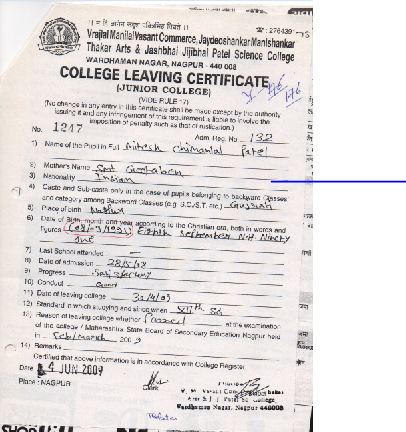 Vrajlal Manilal Vasant Commerce, Jaydeoshankar Manishankar
Thakar Arts & Jashbhai Jijibhai Patel Science College
WARDHAMAN NAGAR, NAGPUR - 440 008
COLLEGE LEAVING CERTIFICATE
(JUNIOR COLLEGE)
(VIDE RULE 17)
(No change in any entry in this certificate shall be made except by the authority
issuing it and any infringement of this requirement is liable to involve the
imposition of penalty such as that of rustication.)
No. 1247 Adm. Reg. No. 132
1) Name of the Pupil in Full Nitesh Chimanlal Patel
2) Mother's Name Smt
3) Nationality Indian
4) Caste and Sub-caste only in the case of pupils belonging to backward Classes
and category among Backward Classes (e.g. S.C./S.T. etc.)
5) Place of birth
6) Date of Birth, month and year according to the Christian era, both in words and
figures Eighth September
7) Last School attended
8) Date of admission
9) Progress Satisfactory
10) Conduct Good
11) Date of leaving college 30/4/09
12) Standard in which studying and since when
13) Reason of leaving college whether Passed at the examination
of the college / Maharashtra State Board of Secondary Education Nagpur held
in Feb/March 2009
14) Remarks
Certified that above information is in accordance with College Register.
Date 4 JUN 2009
Place : NAGPUR Clerk
Wardhaman Nagar, Nagpur 440008